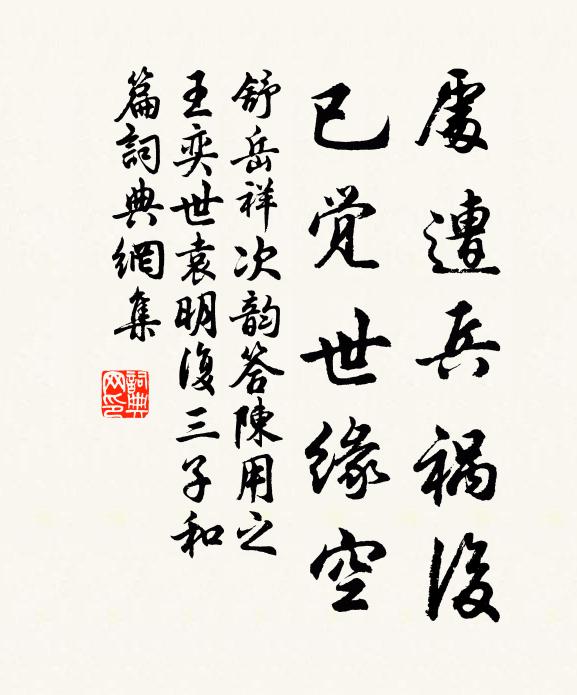 屢遭兵祸後
已觉世緣空
舒岳祥次韵答陳用之
王奕世袁明復三子和
篇詞典網集
詞典
网印